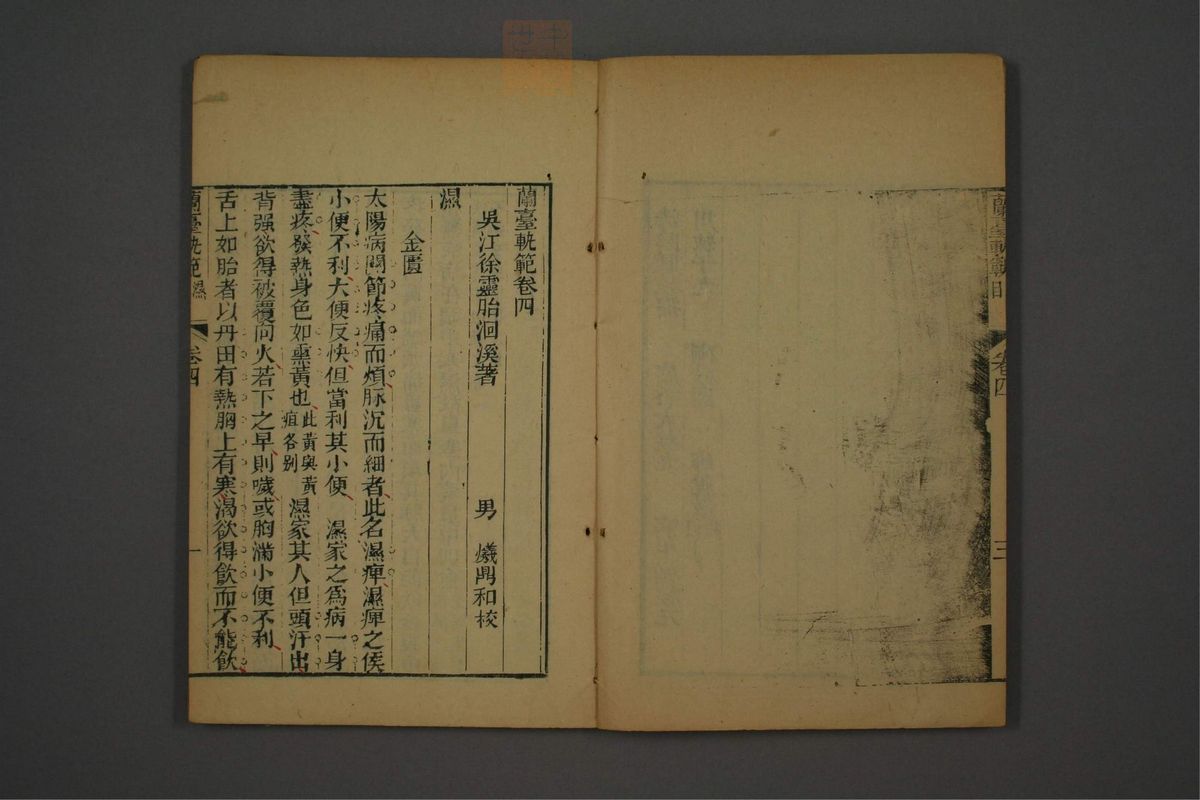 蘭臺軌範目
卷四
三
蘭臺軌範卷四
吳江徐靈胎洄溪著　男　爔鼎和校
濕
金匱
太陽病關節疼痛而煩脉沉而細者此名濕痺濕痺之侯
小便不利大便反快但當利其小便　濕家之爲病一身
盡疼發熱身色如熏黃也此黃與黃疸各别　濕家其人但頭汗出
背强欲得被覆向火若下之早則噦或胸滿小便不利
舌上如胎者以丹田有熱胸上有寒渴欲得飲而不能飲
蘭臺軌範　濕
卷四
一